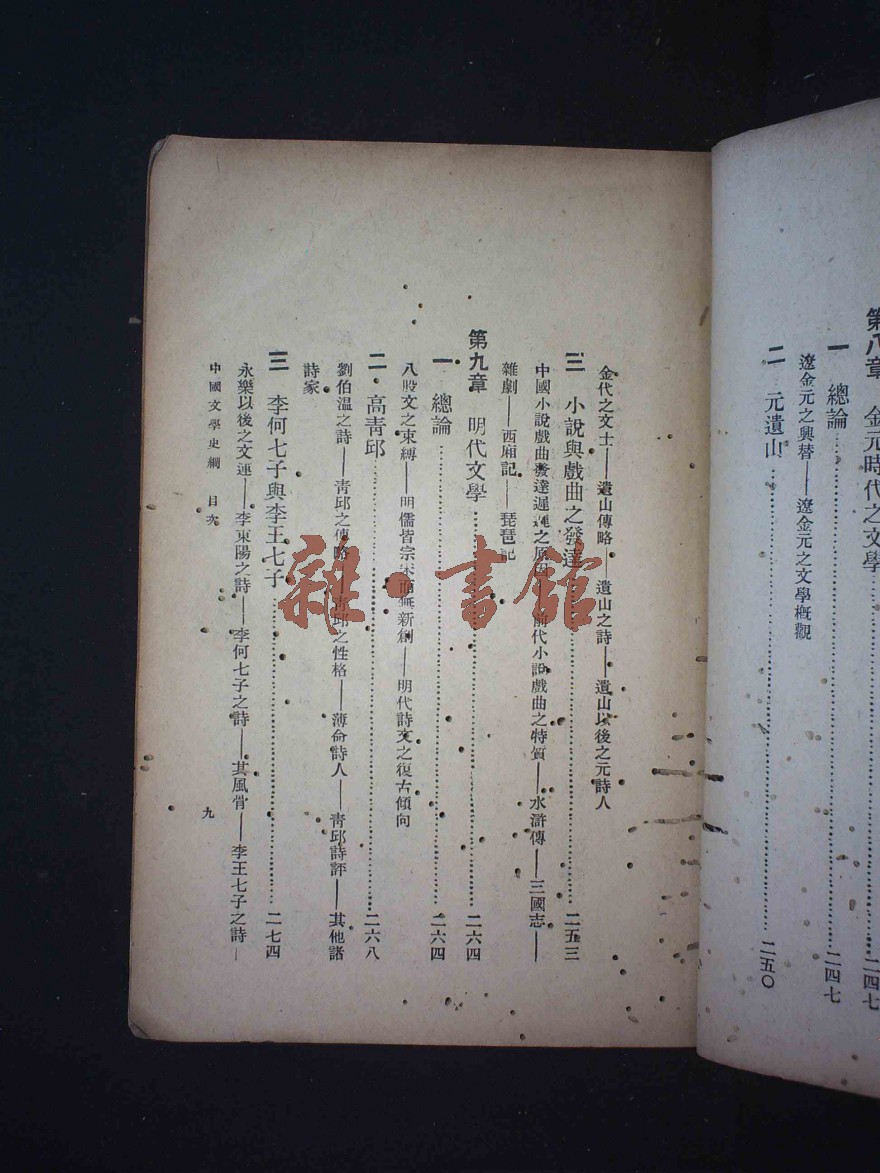 第八章　金元時代之文學……二四七
一　總論……二四七
遼金元之興替——遼金元之文學概觀
二　元遺山……二五〇
金代之文士——遺山傳略——遺山之詩——遺山以後之元詩人
三　小說與戲曲之發達……二五三
中國小說戲曲發達遲遲之原因——前代小說戲曲之特質——水滸傳——三國志——
雜劇——西廂記——琵琶記
第九章　明代文學……二六四
一　總論……二六四
八股文之束縛——明儒皆宗宋而無新創——明代詩文之復古傾向
二　高青邱……二六八
劉伯溫之詩——青邱之傳略——青邱之性格——薄命詩人——青邱詩評——其他諸
詩家
三　李何七子與李王七子……二七四
永樂以後之文運——李東陽之詩——李何七子之詩——其風骨——李王七子之詩—
中國文學史綱　目次
九
雜·書館